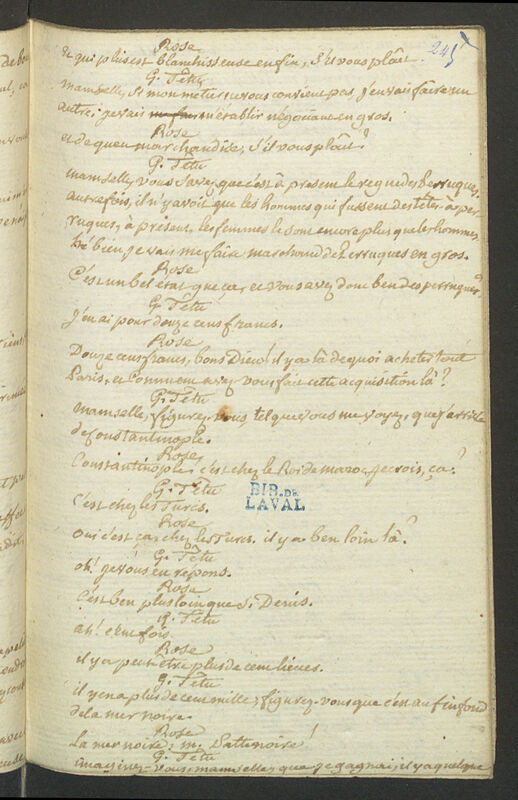 245
Rose
et qui plus est blanchisseuse en fin, s'il vous plait.
G. Têtu
mamselle, si mon metier ne vous convient pas, j'en vais faire un
autre; je vais m'établir négociant en gros.
Rose
et de queu marchandise, s'il vous plait?
G. Têtu
mamselle, vous savez que c'est à présent le regne des Perruques.
autrefois, il n'y avoit que les hommes qui fussent des têtes à per-
ruques, à présent, les femmes le sont encore plus que les hommes,
hé bien je vais me faire marchand de Perruques en gros.
Rose
C'est un bel état que ça, et vous avez donc ben des perruques?
G. Tétu
J'en ai pour douze cens francs.
Rose
Douze cens francs, bons Dieu! il y a là de quoi acheter tout
Paris, et comment avez vous fait cette acquisition là?
G. Tétu
mamselle, figurez vous tel que vous me voyez, que j'arrive
de Constantinople.
Rose
Constantinople, c'est chez le Roi de maroc, je crois, ça?
G. Tétu
c'est chez les Turcs.
BIB. DE
LAVAL
Rose
oui c'est ça, chez les Turcs. il y a ben loin là?
G. Tétu
oh! je vous en répons.
Rose
c'est ben plus loin que S. Denis.
G. Tétu
ah! cent fois.
Rose
il y a peut être plus de cent lieues.
G. Tétu
il y en a plus de cent mille; figurez-vous que c'en au fin fond
de la mer noire.
Rose
La mer noire; m. Patte noire!
G. Tétu
imaginez-vous, mamselle, que je gagnai, il y a quelque